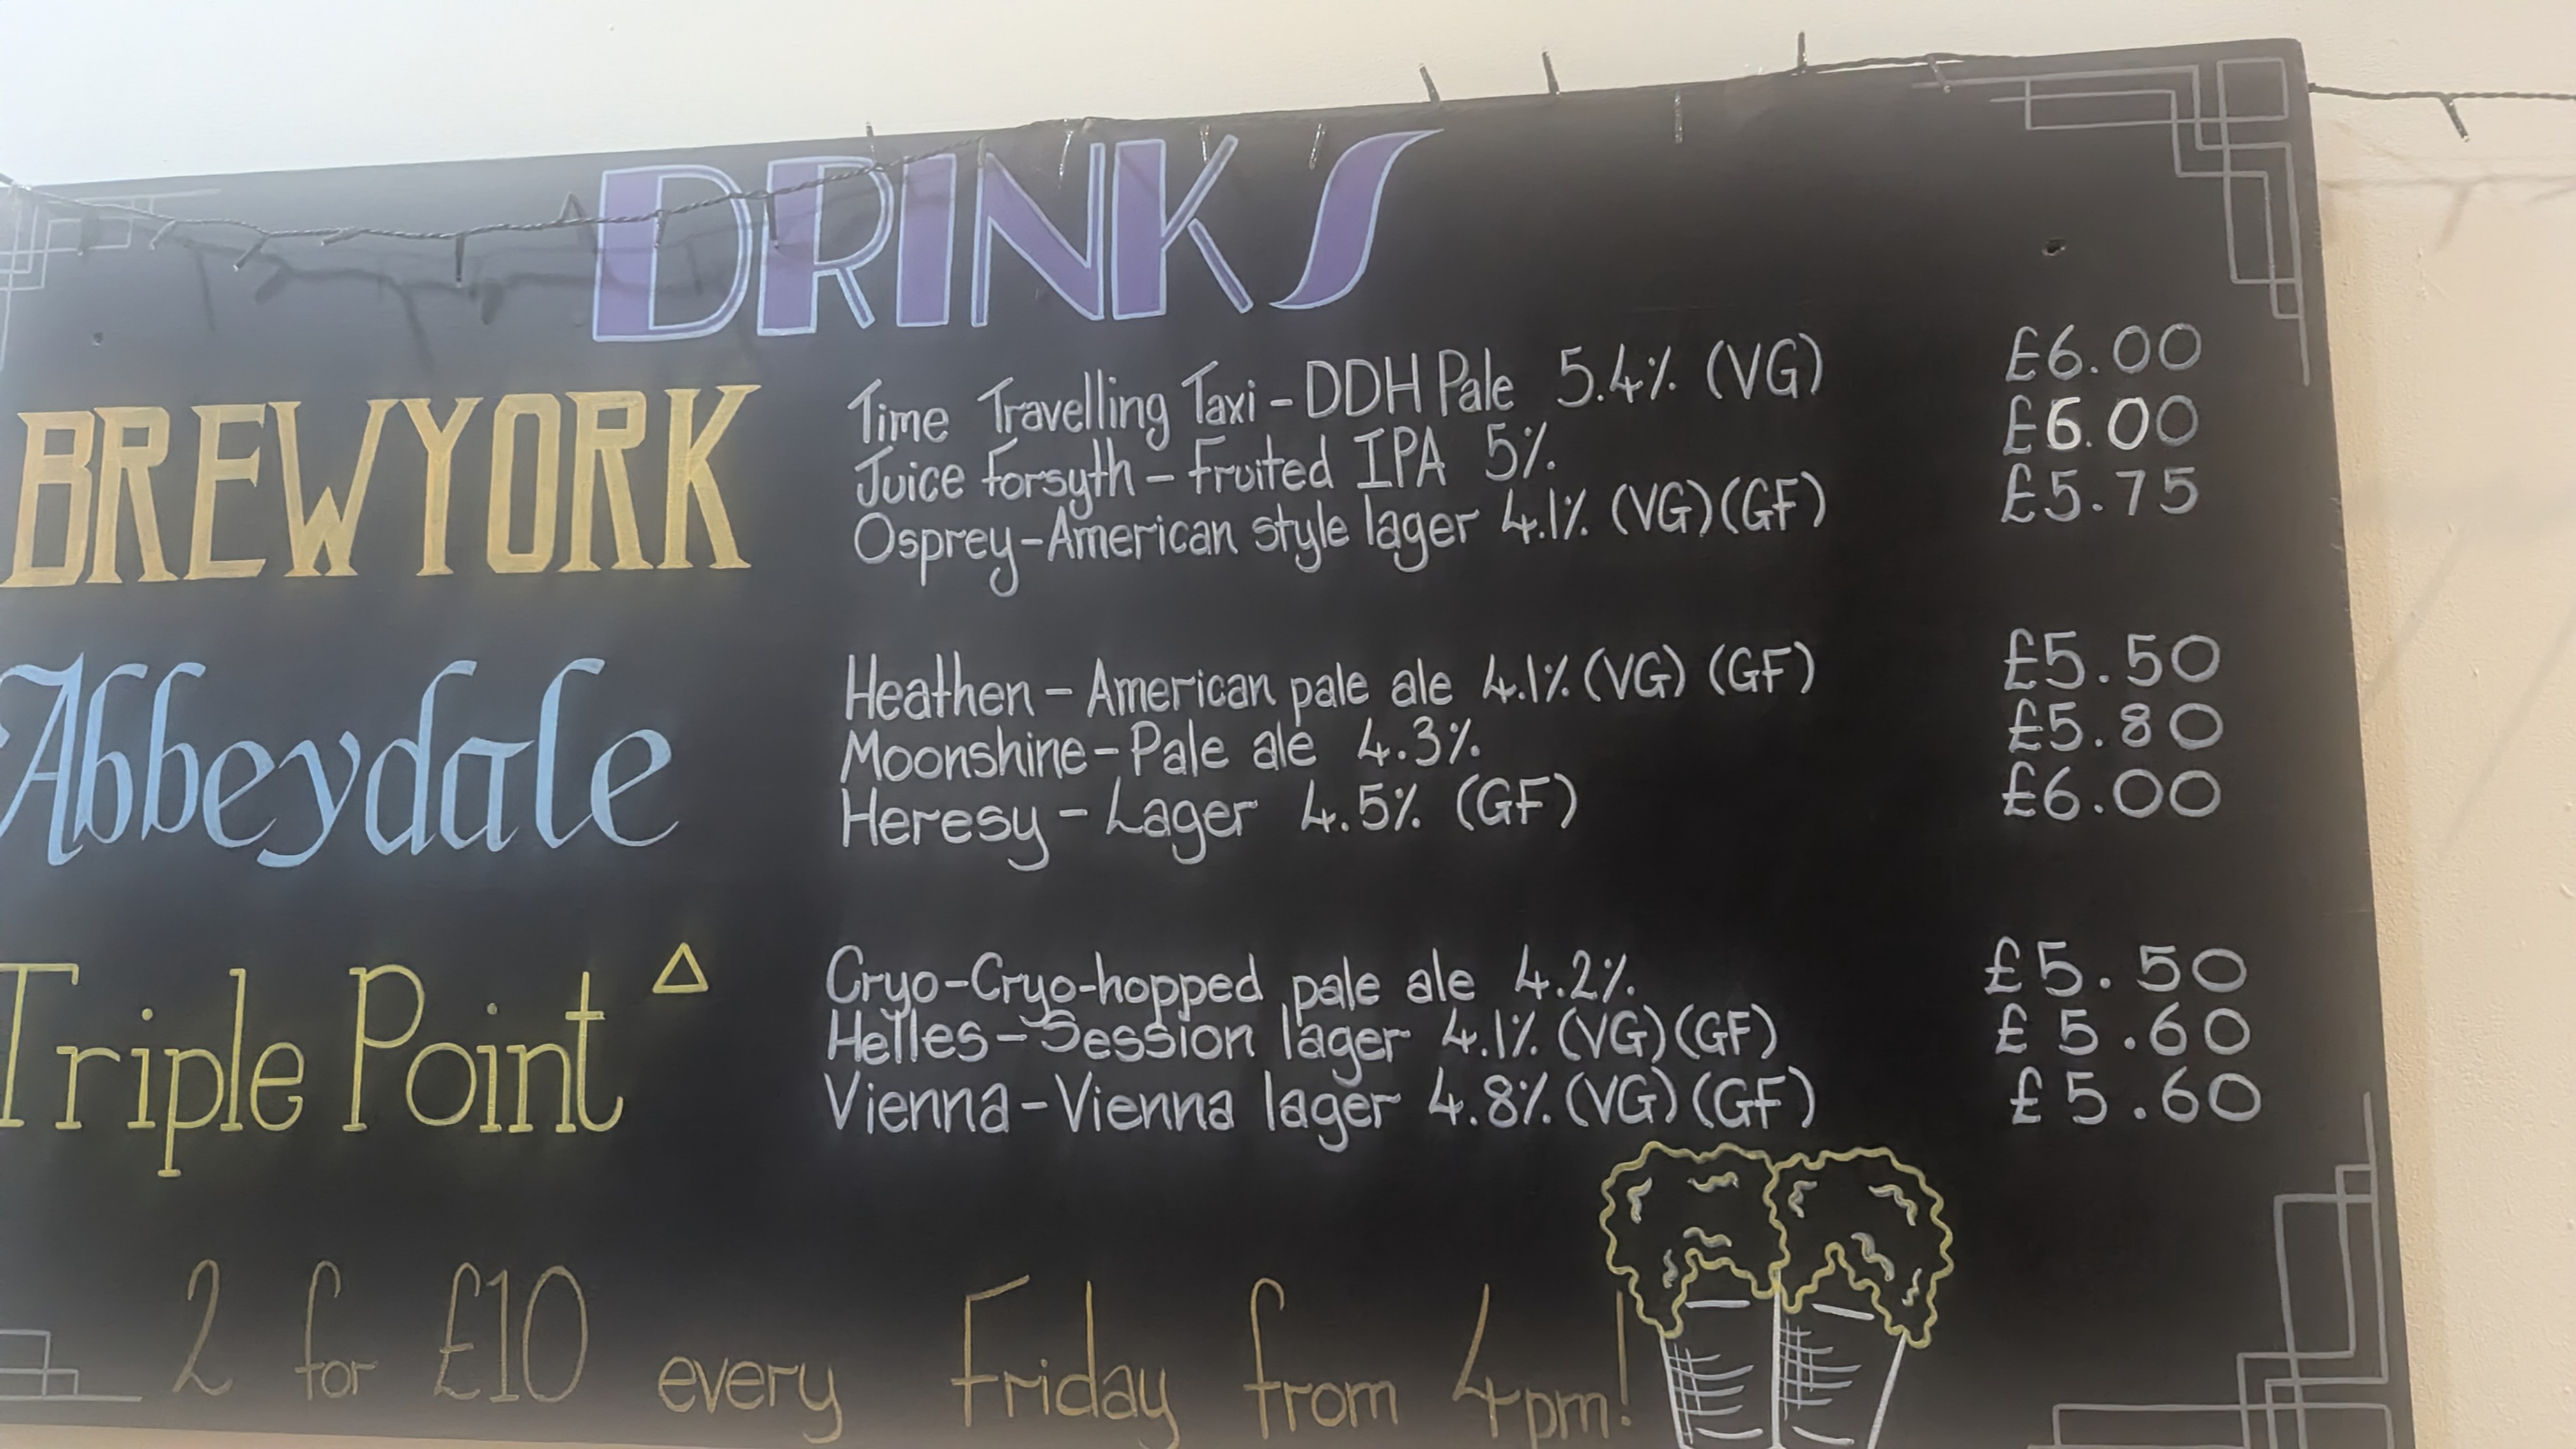 DRINKS
BREWYORK
Time Travelling Taxi - DDH Pale 5.4% (VG) £6.00
Juice Forsyth - Fruited IPA 5% £6.00
Osprey - American style lager 4.1% (VG) (GF) £5.75
Abbeydale
Heathen - American pale ale 4.1% (VG) (GF) £5.50
Moonshine - Pale ale 4.3% £5.80
Heresy - Lager 4.5% (GF) £6.00
Triple Point
Cryo - Cryo-hopped pale ale 4.2% £5.50
Helles - Session lager 4.1% (VG) (GF) £5.60
Vienna - Vienna lager 4.8% (VG) (GF) £5.60
2 for £10 every Friday from 4pm!